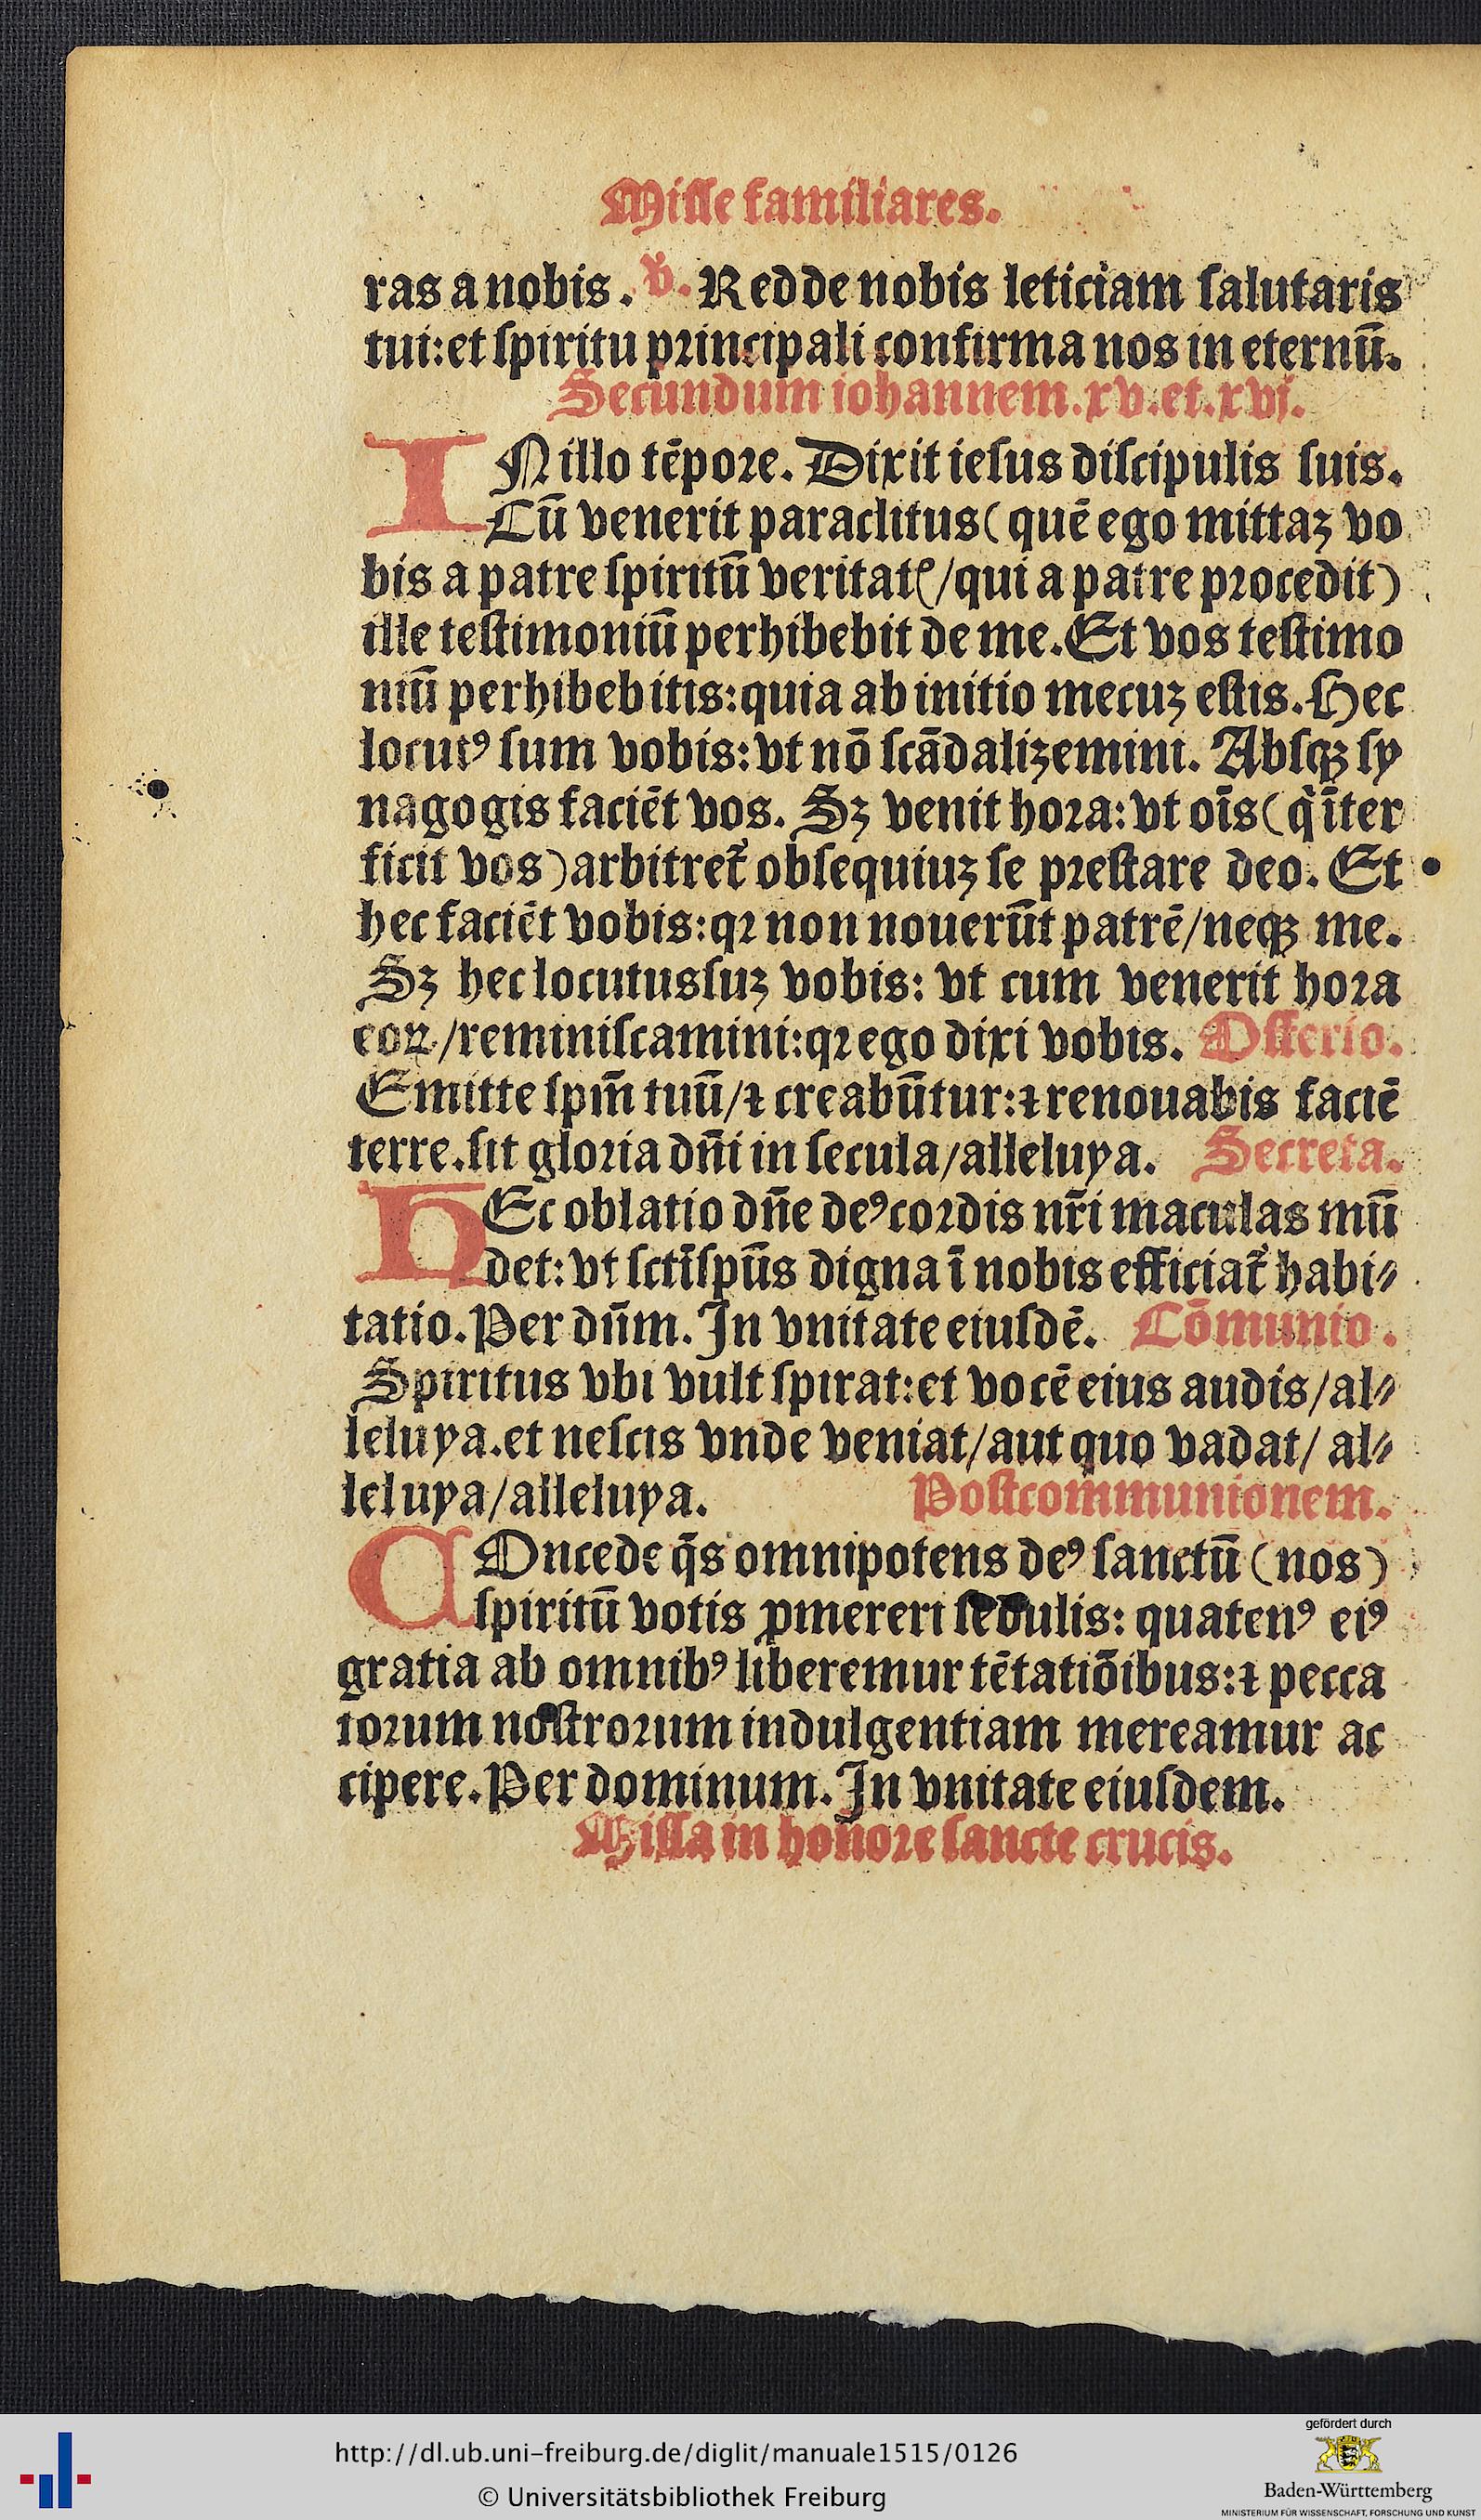 Misse familiares.
ras a nobis. ℣. Redde nobis leticiam ſalutaris
tui: et ſpiritu pꝛincipali confirma nos in eternū.
Secundum iohannem. xv. et. xvj.
INillo tēpoꝛe. Dixit ieſus diſcipulis ſuis.
Cū venerit paraclitus (quē ego mittaꝫ vo
bis a patre ſpiritū veritatꝭ/qui a patre pꝛocedit)
ille teſtimoniū perhibebit de me. Et vos teſtimo
niū perhibebitis: quia ab initio mecuꝫ eſtis. Hec
locutꝰ ſum vobis: vt nō ſcādalizemini. Abſqꝫ ſy
nagogis faciēt vos. Sꝫ venit hoꝛa: vt oīs (q̇ īter
ficit vos) arbitret᷑ obſequiuꝫ ſe pꝛeſtare deo. Et
hec faciēt vobis: qꝛ non nouerūt patrē/neqꝫ me.
Sꝫ hec locutus ſuꝫ vobis: vt cum venerit hoꝛa
eoꝝ/reminiſcamini: qꝛ ego dixi vobis. Offerto.
Emitte ſpm̄ tuū/⁊ creabūtur: ⁊ renouabis faciē
terre. ſit gloꝛia dn̄i in ſecula/alleluya. Secreta.
HEc oblatio dn̄e deꝰ coꝛdis nr̄i maculas mū
det: vt ſctī ſpūs digna ī nobis efficiat᷑ habi⸗
tatio. Per dn̄m. In vnitate eiuſdē. Cōmunio.
Spiritus vbi vult ſpirat: et vocē eius audis/al⸗
leluya. et neſcis vnde veniat/aut quo vadat/ al⸗
leluya/alleluya. Poſtcommunionem.
COncede q̄s omnipotens deꝰ ſanctū (nos)
ſpiritū votis ꝓmereri ſedulis: quatenꝰ eiꝰ
gratia ab omnibꝰ liberemur tētatiōibus: ⁊ pecca
toꝛum noſtroꝛum indulgentiam mereamur ac
cipere. Per dominum. In vnitate eiuſdem.
Miſſa in honoꝛe ſancte crucis.
gefördert durch
http://dl.ub.uni-freiburg.de/diglit/manuale1515/0126
© Universitätsbibliothek Freiburg
Baden-Württemberg
MINISTERIUM FÜR WISSENSCHAFT, FORSCHUNG UND KUNST